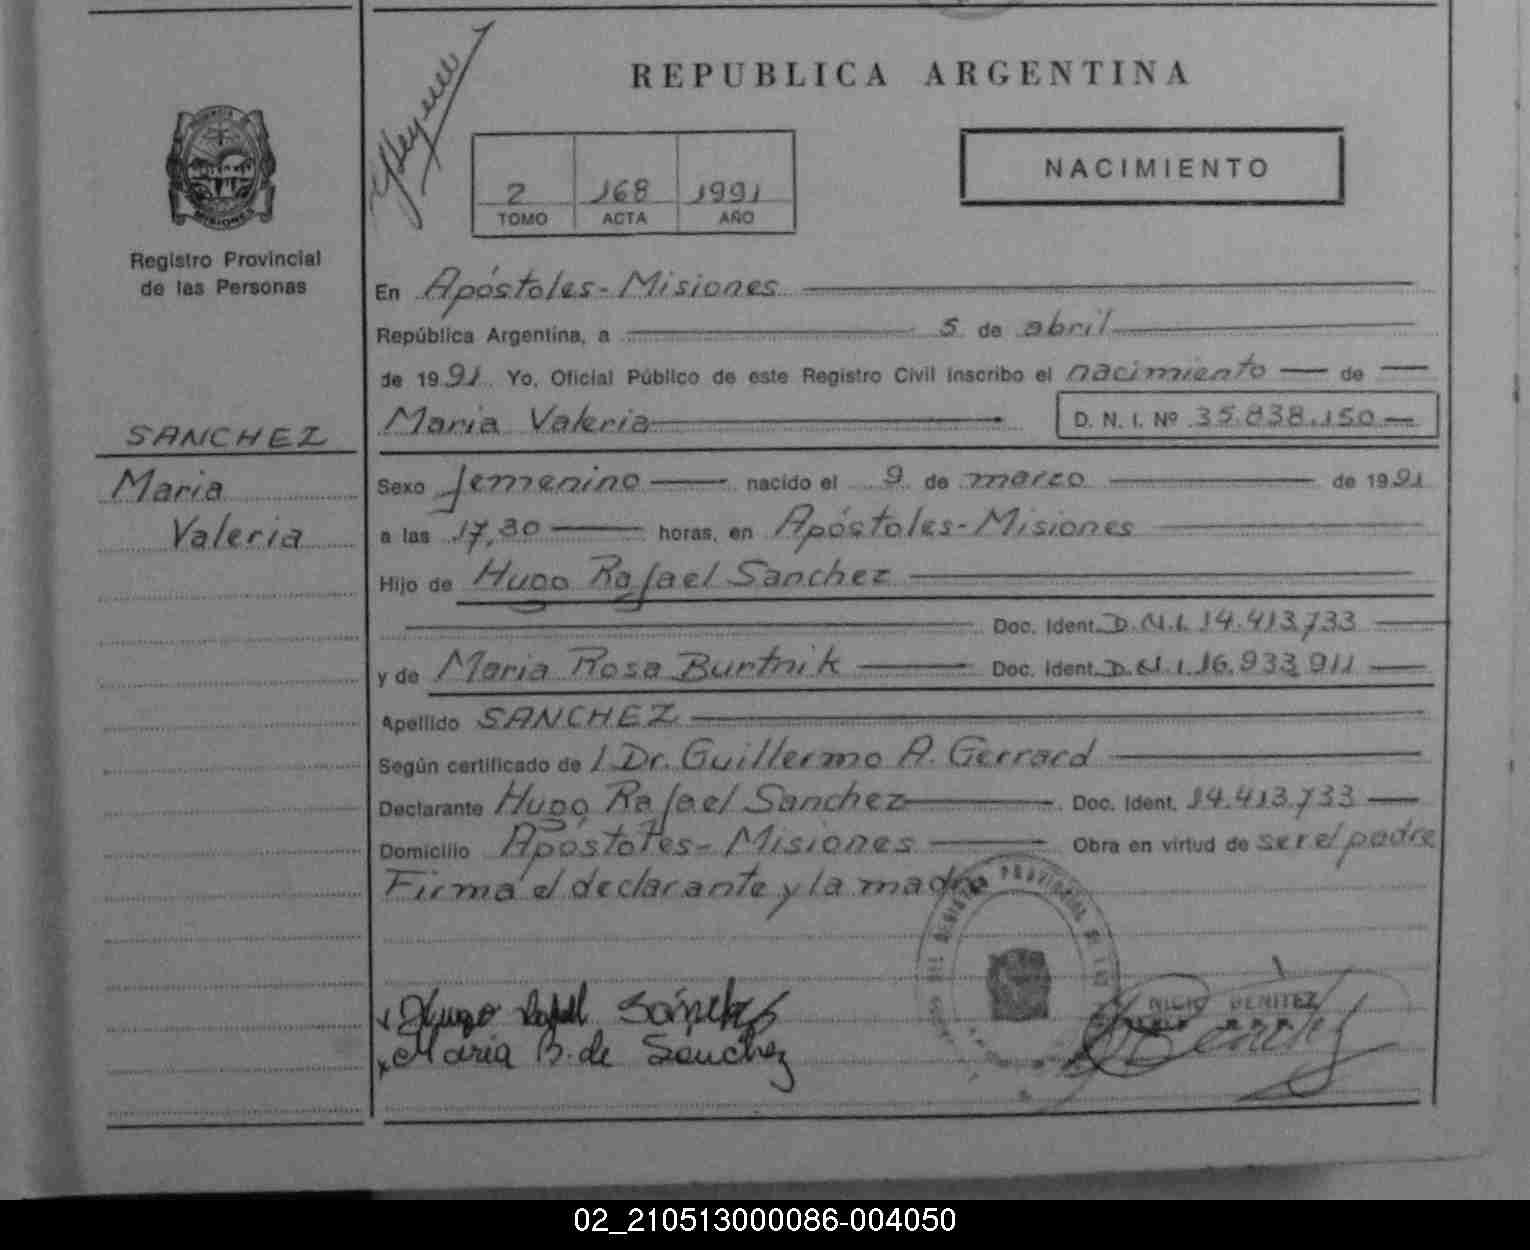 REPUBLICA ARGENTINA
NACIMIENTO
2 168 1991
TOMO ACTA AÑO
MISIONES
Registro Provincial
de las Personas
SANCHEZ
Maria
Valeria
En Apóstoles - Misiones
República Argentina, a 5 de abril
de 1991 Yo, Oficial Público de este Registro Civil inscribo el nacimiento de
Maria Valeria D. N. I. Nº 35.838.150
Sexo femenino nacido el 9 de marzo de 1991
a las 17,30 horas, en Apóstoles - Misiones
Hijo de Hugo Rafael Sanchez
Doc. Ident. D.N.I. 14.413.733
y de Maria Rosa Burtnik Doc. Ident. D.N.I. 16.933.911
Apellido SANCHEZ
Según certificado de l Dr. Guillermo A. Gerrard
Declarante Hugo Rafael Sanchez Doc. Ident. 14.413.733
Domicilio Apóstoles - Misiones Obra en virtud de ser el padre
Firma el declarante y la madre
Hugo Rafael Sánchez
Maria B. de Sanchez
BENITEZ
02_210513000086-004050